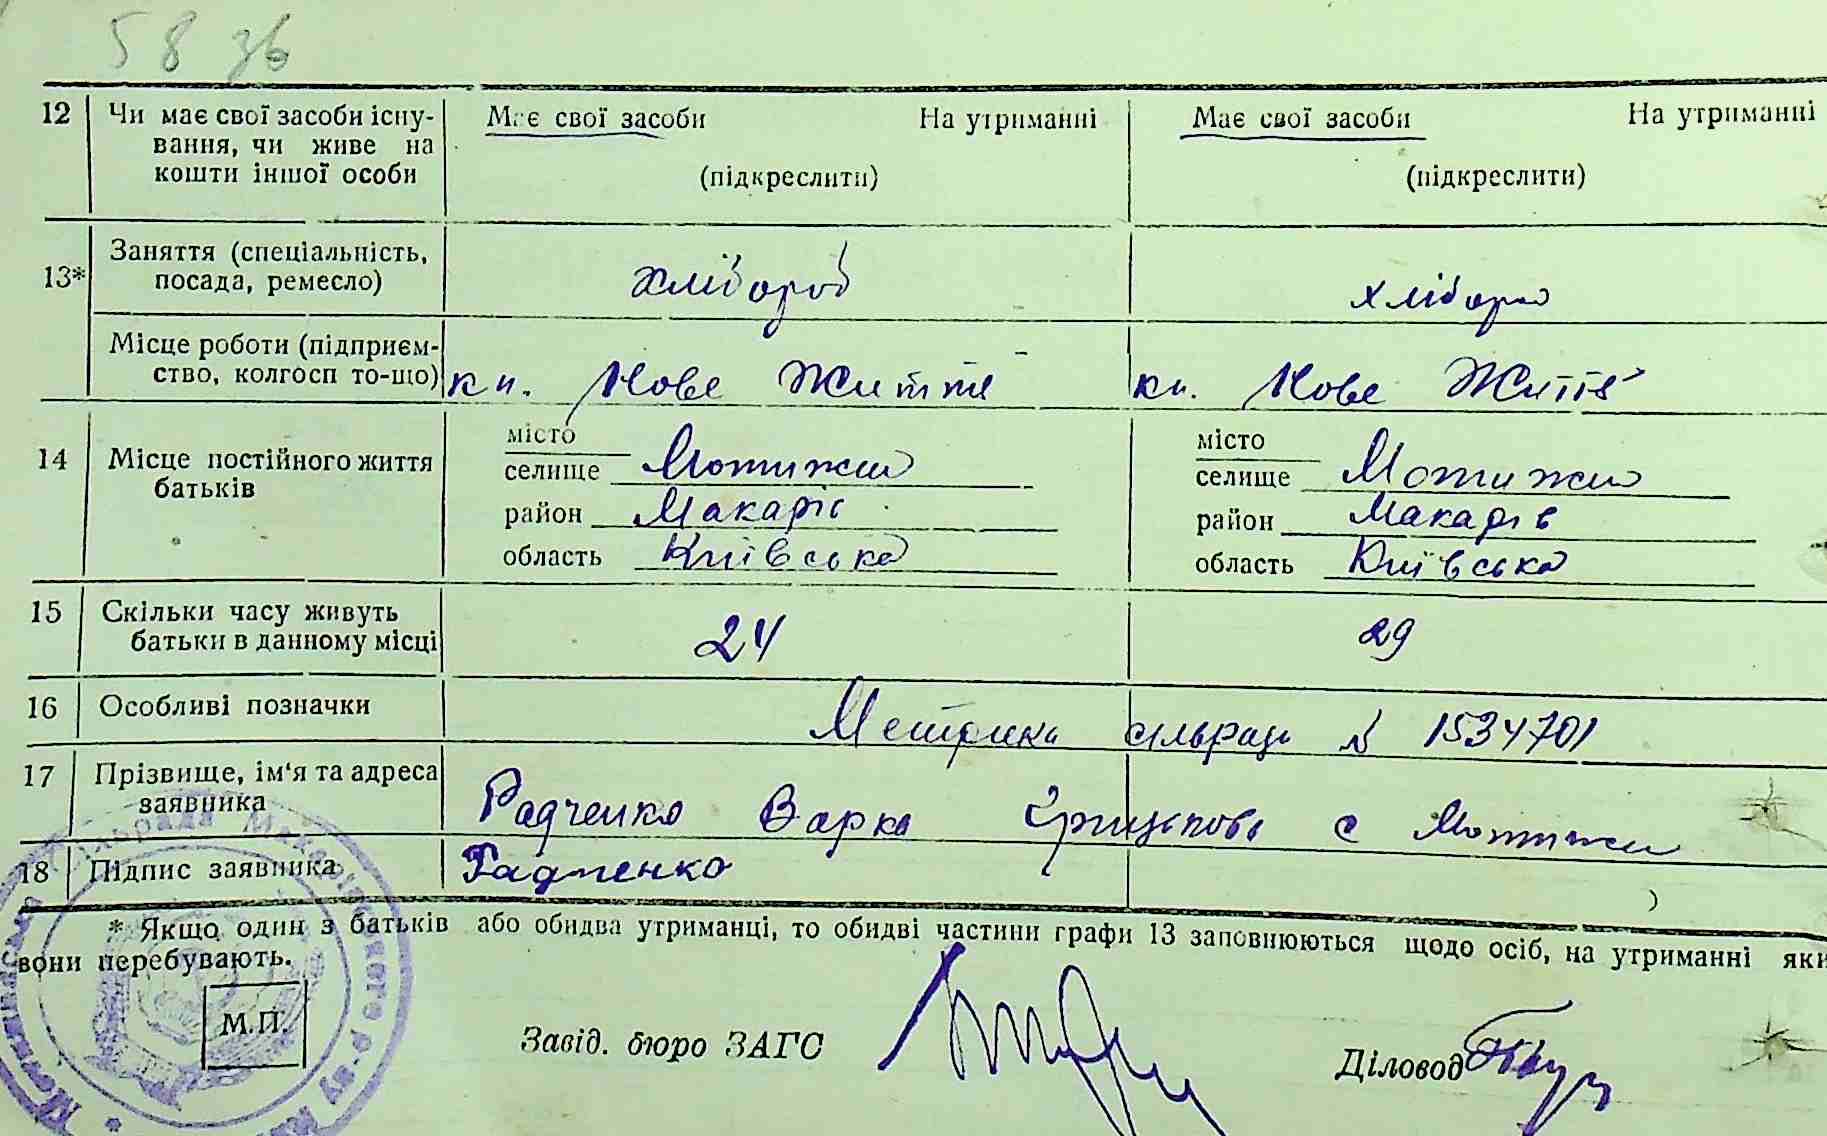 58 зв
12 Чи має свої засоби існу- Має свої засоби На утриманні Має свої засоби На утриманні
вання, чи живе на
кошти іншої особи (підкреслити) (підкреслити)
13* Заняття (спеціальність,
посада, ремесло) хлібороб хлібороб
Місце роботи (підприєм-
ство, колгосп то-що) кп. Нове Життя кп. Нове Життя
14 Місце постійного життя
батьків
місто місто
селище Мотижин селище Мотижин
район Макарів район Макарів
область Київська область Київська
15 Скільки часу живуть
батьки в данному місці 24 29
16 Особливі позначки Метрика сільради № 1534701
17 Прізвище, ім'я та адреса
заявника Радченко Варка с Мотижин
18 Підпис заявника Радченко
* Якщо один з батьків або обидва утриманці, то обидві частини графи 13 заповнюються щодо осіб, на утриманні яки
вони перебувають.
М.П.
Завід. бюро ЗАГС Діловод